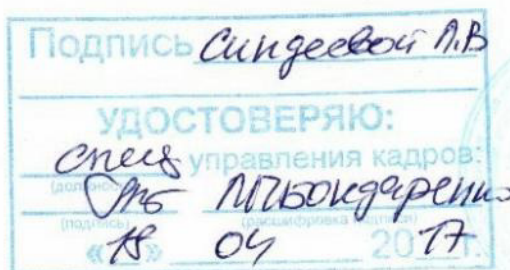 Подпись Синдеевой Л.В
УДОСТОВЕРЯЮ:
спец управления кадров:
(должность)
Бондаренко
(подпись) (расшифровка подписи)
«18» 04 2017 г.